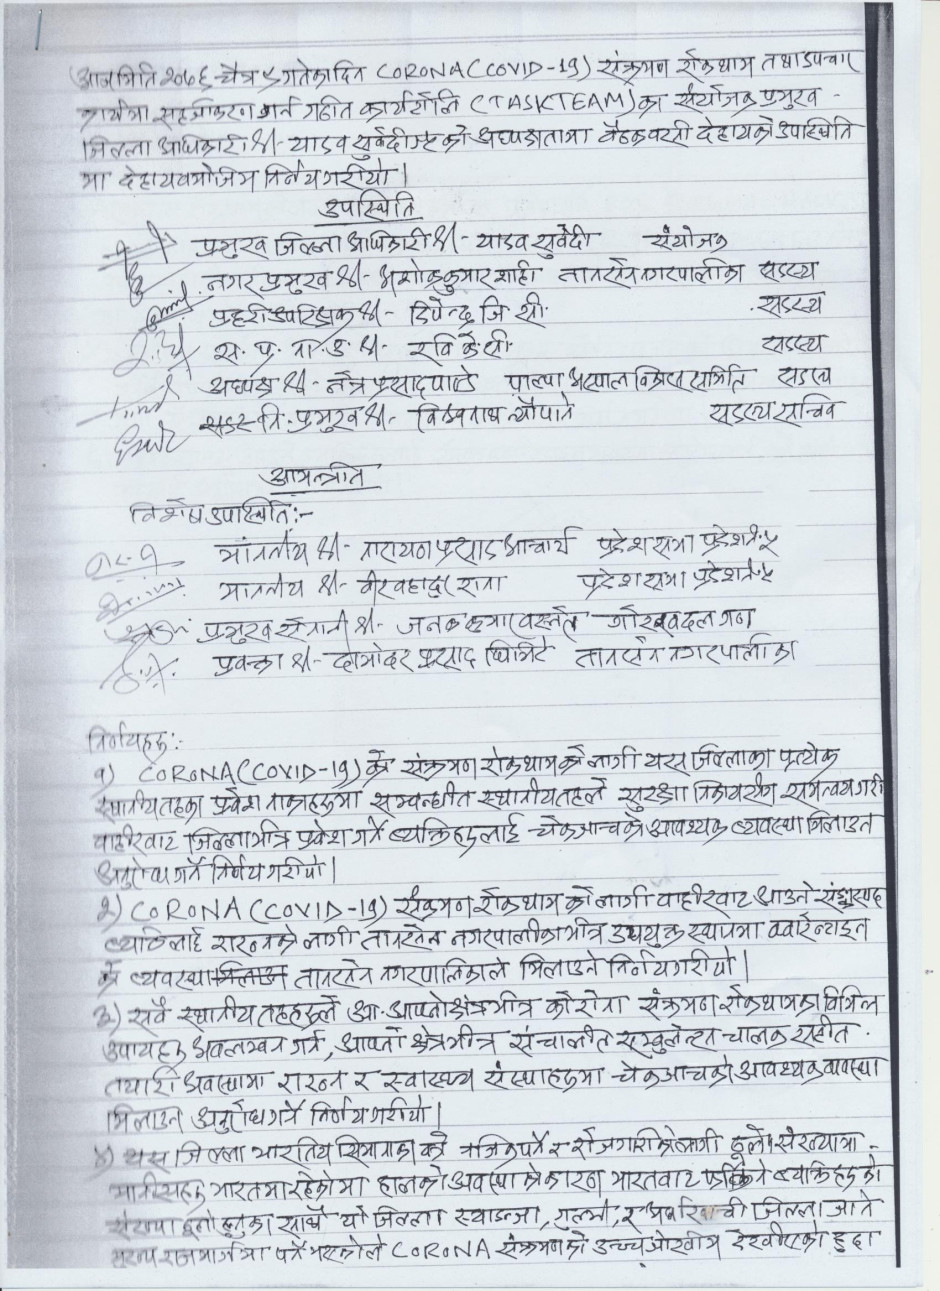 आज मिति २०७६ चैत्र ५ गतेका दिन CORONA (COVID-19) संक्रमण रोकथाम तथा उपचार
कार्यमा सहजीकरण गर्न गठीत कार्यटोलि (TASKTEAM) का संयोजक प्रमुख
जिल्ला अधिकारी श्री यादव सुवेदीज्यूको अध्यक्षतामा बैठक बसी देहायको उपस्थिति
मा देहाय वमोजिम निर्णय गरीयो।
उपस्थिति
प्रमुख जिल्ला अधिकारी श्री- यादव सुवेदी संयोजक
नगर प्रमुख श्री- अशोक कुमार शाही तानसेन नगरपालीका सदस्य
प्रहरी उपरिक्षक श्री- डिपेन्द्र जि.सी. सदस्य
स. प्र. ना. उ. श्री- रवि के.सी. सदस्य
अध्यक्ष श्री- नेत्र प्रसाद पाण्डे पाल्पा अस्पताल विकास समिति सदस्य
नि. प्रमुख श्री- विश्वनाथ न्यौपाने सदस्य सचिव
आमन्त्रीत
विशेष उपस्थिति:-
माननीय श्री- नारायण प्रसाद आचार्य प्रदेश सभा प्रदेश नं. ५
माननीय श्री- वीरबहादुर राना प्रदेश सभा प्रदेश नं. ५
प्रमुख सेनानी श्री- जनक कुमार वस्नेत गोरख वदल गण
प्रवक्ता श्री- दामोदर प्रसाद घिमिरे तानसेन नगरपालीका
निर्णयहरु:-
१) CORONA (COVID-19) को संक्रमण रोकथामको लागी यस जिल्लाका प्रत्येक
स्थानीय तहका प्रवेश नाकाहरुमा सम्वन्धीत स्थानीय तहले सुरक्षा निकायसँग समन्वय गरी
वाहीरवाट जिल्लाभीत्र प्रवेश गर्ने व्यक्तिहरुलाई चेकजाचको आवश्यक व्यवस्था मिलाउन
अनुरोध गर्ने निर्णय गरीयो।
२) CORONA (COVID-19) संक्रमण रोकथामको लागी वाहीरवाट आउने संङ्कास्पद
व्यक्तिलाई राख्नको लागी तानसेन नगरपालीका भीत्र उपयुक्त स्थानमा क्वारेन्टाइन
को व्यवस्था मिलाउन तानसेन नगरपालिकाले मिलाउने निर्णय गरीयो।
३) सवै स्थानीय तहहरुले आ-आफ्नो क्षेत्रभीत्र कोरोना संक्रमण रोकथामका विभिन्न
उपायहरु अवलम्वन गर्न, आफ्नो क्षेत्रभीत्र संचालीत एम्वुलेन्स चालक सहीत
तयारी अवस्थामा राख्न र स्वास्थ्य संस्थाहरुमा चेकजाचको आवश्यक व्यवस्था
मिलाउन अनुरोध गर्ने निर्णय गरीयो।
४) यस जिल्ला भारतिय सिमानाका को नजिक पर्ने र रोजगारीको लागी ठूलो संख्यामा
मानीसहरु भारतमा रहेकोमा हालको अवस्थाको कारण भारतवाट फर्किने व्यक्तिहरुको
संख्या ठूलो हुनुका साथै यो जिल्ला स्याङजा, गुल्मी, र अर्घाखाँची जिल्ला जाने
मुख्य राजमार्गमा पर्ने भएकोले CORONA संक्रमणको उच्च जोखीम देखीएको हुदा